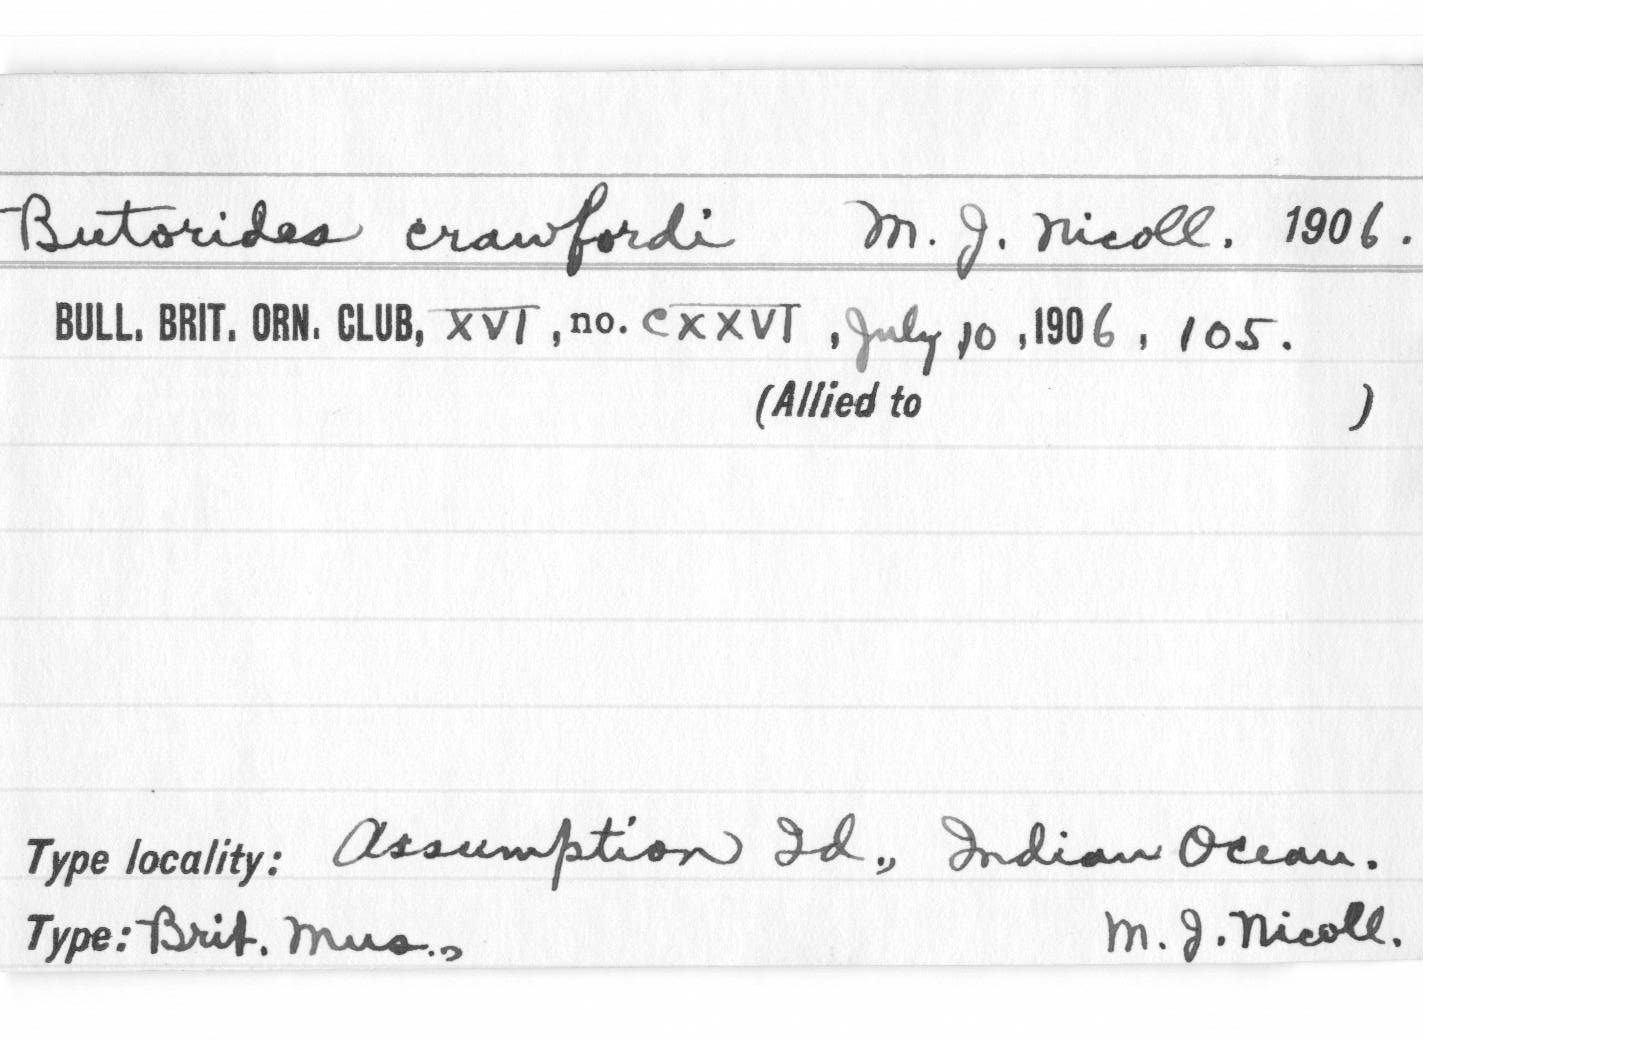 Butorides crawfordi M. J. Nicoll. 1906.
BULL. BRIT. ORN. CLUB, XVI, no. CXXVI, July 10, 1906, 105.
(Allied to )
Type locality: Assumption Id., Indian Ocean.
Type: Brit. Mus., M. J. Nicoll.